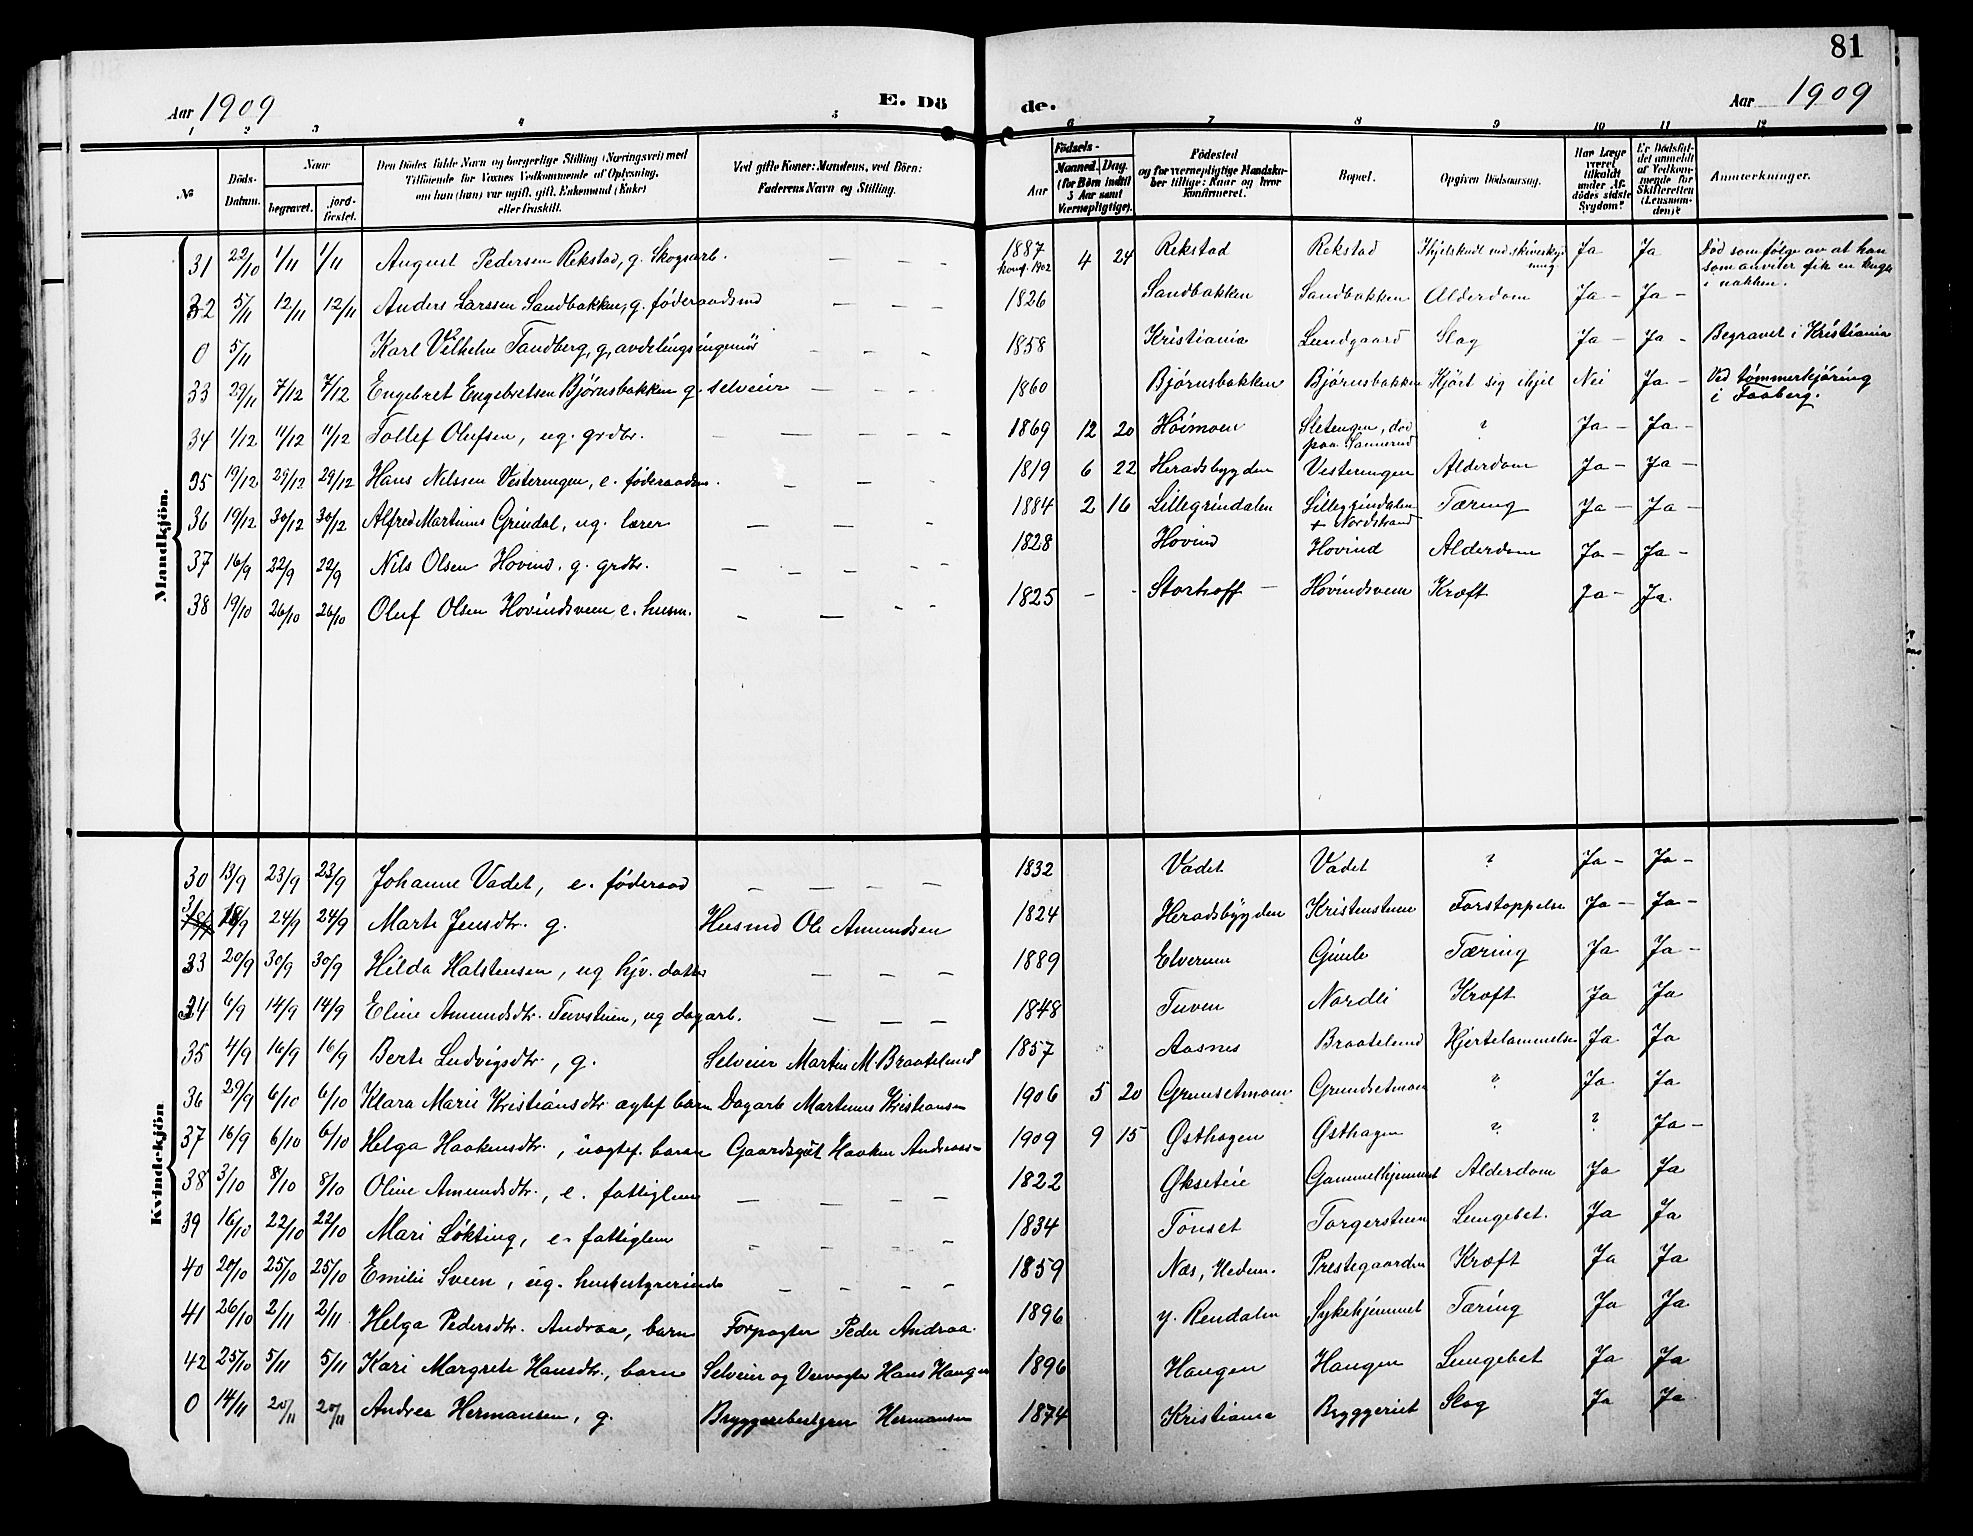 81
Aar 1909
E. Dö
de.
Aar 1909
1 2 3 4 5
6 7 8 9 10 11 12
No
Döds-Datum.
Naar
begravet.
jord-fæstet.
Den Dödes fulde Navn og borgerlige Stilling (Næringsvei) med
Tilföiende for Voxnes Vedkommende af Oplysning,
om han (hun) var ugift, gift, Enkemand (Enke)
eller fraskilt.
Ved gifte Koner: Mandens, ved Börn:
Faderens Navn og Stilling.
Födsels-
Aar
Maaned. Dag.
(for Börn indtil
5 Aar samt
Værnepligtige).
Födested
og for værnepligtige Mandska-
ber tillige: Naar og hvor
konfirmeret.
Bopæl.
Opgiven Dödsaarsag.
Har Læge
været
tilkaldt
under Af-
dödes sidste
Sygdom?
Er Dödsfal-
det anmeldt
af Vedkom-
mende for
Skifteretten
(Lensman-
den)?
Anmærkninger.
Mandkjön.
31 22/10 1/11 1/11 August Pedersen Rekstad, g. Skogsarb. — — — 1887 konf. 1902 4 24 Rekstad Rekstad Ihjelskudt ved skiveskydning Ja Ja Død som følge av at han som anviser fik en kugle i nakken.
32 5/11 12/11 12/11 Anders Larssen Sandbakken, g. føderaadsmd — — — 1826 Sandbakken Sandbakken Alderdom Ja — Ja —
0 5/11 Karl Vilhelm Tandberg, g, avdelingsingeniør — — — 1858 Kristiania Lundgaard Slag Ja — Ja — Begravet i Kristiania
33 29/11 7/12 7/12 Engebret Engebretsen Bjørnsbakken g. selveier — — 1860 Bjørnsbakken Bjørnsbakken Kjørt sig ihjel Nei Ja — Ved tømmerkjøring i Faaberg.
34 1/12 11/12 11/12 Tollef Olufsen, ug. grdbr. — — — — 1869 12 20 Høimoen Sletengen, død paa Sannerud ? Ja — Ja —
35 19/12 29/12 29/12 Hans Nilssen Vesteringen, e. føderaadsm. — — 1819 6 22 Heradsbygden Vesteringen Alderdom Ja — Ja —
36 19/12 30/12 30/12 Alfred Martinus Grindal, ug. lærer — — — 1884 2 16 Lillegrindalen Lillegrindalen + Nordstrand Tæring Ja — Ja —
37 16/9 22/9 22/9 Nils Olsen Hovind. g. grdbr. — — — — 1828 Hovind Hovind Alderdom Ja — Ja —
38 19/10 26/10 26/10 Oluf Olsen Hovindsveen e. husm. — — — — 1825 — - Storhoff — Hovindsveen Kræft Ja — Ja.
Kvindekjön
30 13/9 23/9 23/9 Johanne Vadet, e. føderaad — — — — 1832 Vadet Vadet ? Ja — Ja —
31 18/9 24/9 24/9 Marte Jensdtr. g. Husmd Ole Amundsen 1824 Heradsbygden Kristenstuen Forstoppelse Ja — Ja —
33 20/9 30/9 30/9 Hilda Halstensen, ug hjv. datter — — — 1889 Elverum Gimle Tæring Ja Ja —
34 6/9 14/9 14/9 Eline Amundsdtr. Tuvstuen, ug dagarb. — — — 1848 Tuven Nordli Kræft Ja Ja
35 4/9 16/9 16/9 Berte Ludvigsdtr., g. Selveier Martin M. Braatelund 1857 Aasnes Braatelund Hjertelammelse Ja Ja
36 29/9 6/10 6/10 Klara Marie Kristiansdtr. ægtef. barn Dagarb Martinus Kristiansen 1906 5 20 Grundsetmoen Grundsetmoen ? Ja Ja
37 16/9 6/10 6/10 Helga Haakensdtr., uægtef. barn Gaardsgut Haaken Andreassen 1909 9 15 Østhagen Østhagen ? ? Ja —
38 3/10 8/10 8/10 Oline Amundsdtr., e. fattiglem — — — — 1822 Økseteie Gammelhjemmet Alderdom Ja Ja
39 16/10 22/10 22/10 Mari Løkting, e. fattiglem — — — — 1834 Tønset Torgerstuen Lungebet. Ja Ja
40 20/10 25/10 25/10 Emilie Sveen, ug. husbestyrerinde — — — — 1859 Næs, Hedem. Prestegaarden Kræft Ja Ja
41 26/10 2/11 2/11 Helga Pedersdtr. Andraa, barn Forpagter Peder Andraa. 1896 y. Rendalen Sykehjemmet Tæring Ja Ja
42 25/10 5/11 5/11 Kari Margrete Hansdtr., barn Selveier og Veivogter Hans Haugen 1896 Haugen Haugen Lungebet Ja Ja
0 14/11 20/11 20/11 Andrea Hermansen, g. Bryggeribestyrer Hermansen 1874 Kristiania Bryggeriet Slag Ja Ja